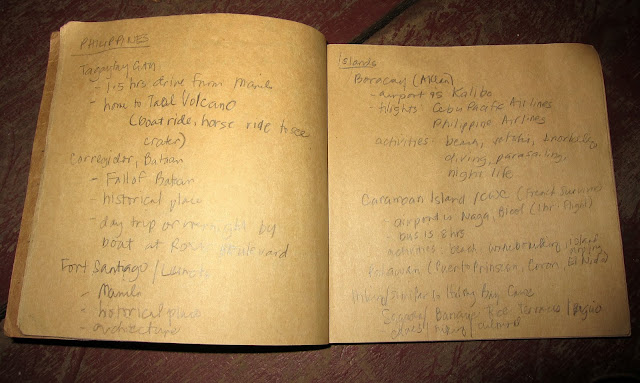 PHILIPPINES
Tagaytay City
- 1.5 hrs drive from Manila
- home to Taal Volcano
(boat ride, horse ride to see
crater)
Corregidor, Bataan
- Fall of Bataan
- historical place
- day trip or overnight by
boat at Roxas Boulevard
Fort Santiago /
- Manila
- historical place
- architecture
Islands
Boracay (Aklan)
- airport is Kalibo
- flights: Cebu Pacific Airlines
Philippine Airlines
activities: beach, snorkelling
diving, parasailing,
night life
Caramoan Island / CWC (French Survivor)
- airport is Naga, Bicol (1 hr. flight)
- bus is 8 hrs
activities: beach wakeboarding, island
Palawan (Puerto Princesa, Coron, El Nido)
Sagada / Banaue Rice Terraces / Baguio
culture